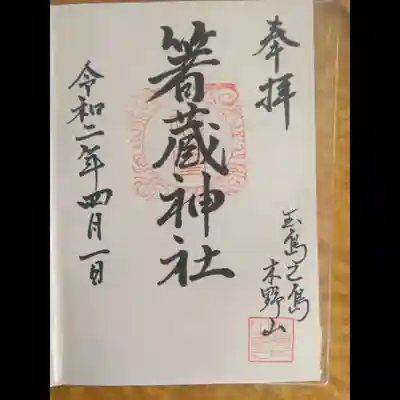 奉拝
玉島之島
木野山
箸蔵神社
令和二年四月一日